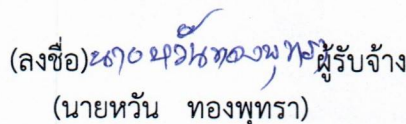 (ลงชื่อ)นายหวัน ทองพุทราผู้รับจ้าง
(นายหวัน ทองพุทรา)